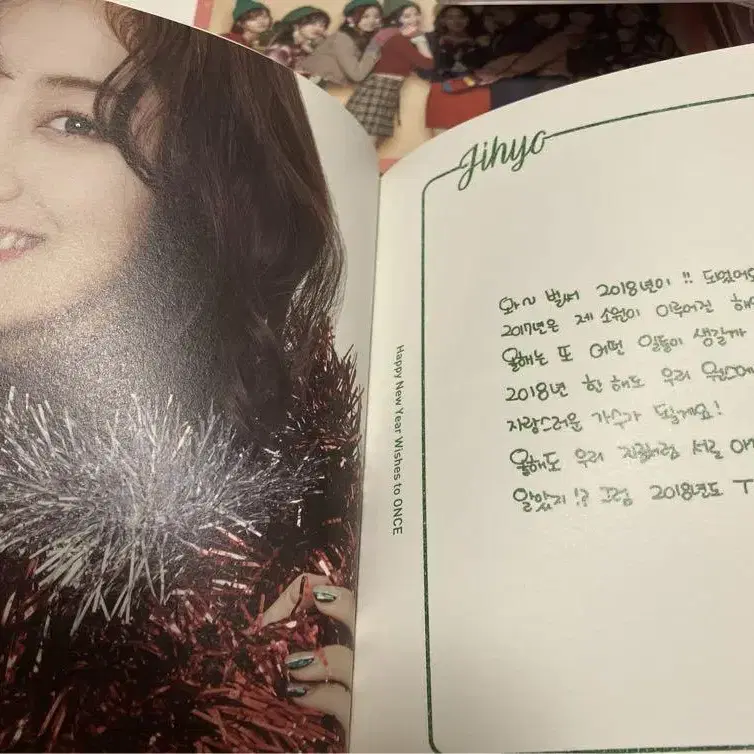 Jihyo
와~ 벌써 2018년이 !! 되었어요
2017년은 제 소원이 이루어진 해
올해는 또 어떤 일들이 생길까
2018년 한 해도 우리 원스에
자랑스러운 가수가 될게요!
올해도 우리 지금처럼 서로
알았지!? 그럼 2018년도 T
Happy New Year Wishes to ONCE